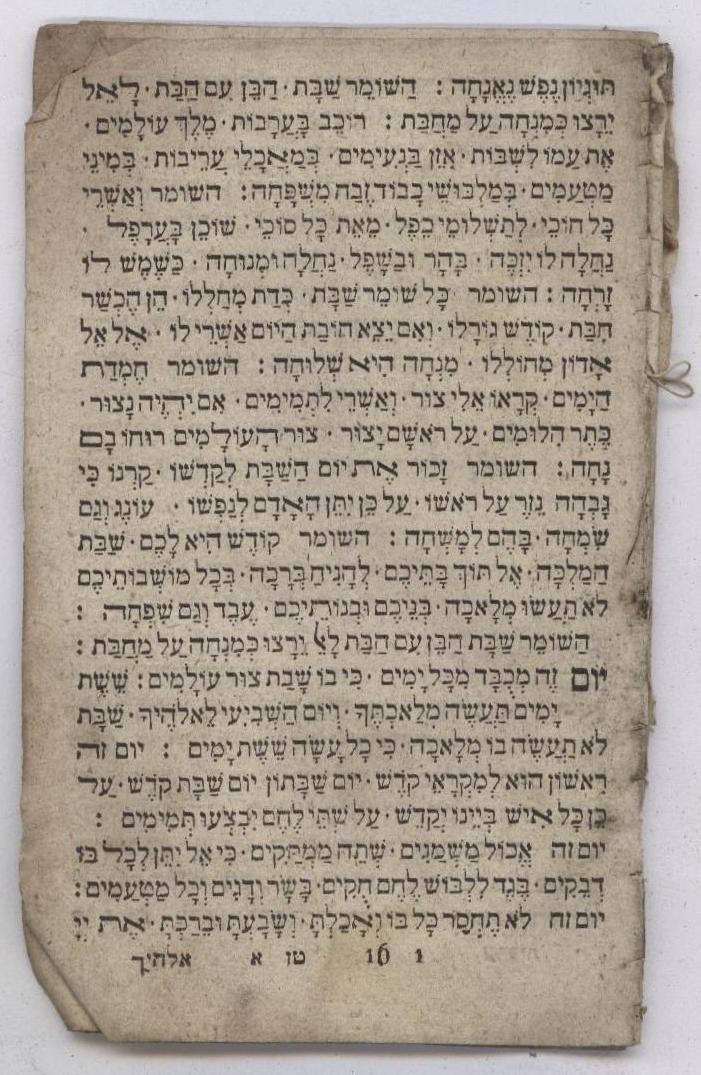 תוגיון נפש נאנחה : השומר שבת · הבן עם הבת · לאל
ירצו כמנחה על מחבת : רוכב בערבות · מלך עולמים ·
את עמו לשבות · אזן בנעימים · במאכלי עריבות · במיני
מטעמים · במלבושי כבוד זבח משפחה : השומר ואשרי
כל חוכי · לתשלומי כפל · מאת כל סוכי · שוכן בערפל ·
נחלה לו יזכה · בהר ובשפל · נחלה ומנוחה · כשמש לו
זרחה : השומר כל שומר שבת · כדת מחללו · הן הכשר
חבת · קודש גורלו · ואם יצא חובת היום אשרי לו · אל אל
אדון מחוללו · מנחה היא שלוחה : השומר חמדת
הימים · קראו אלי צור · ואשרי לתמימים · אם יהיה נצור ·
כתר הלומים · על ראשם יצור · צור העולמים רוחו בם
נחה : השומר זכור את יום השבת לקדשו · קרנו כי
גבהה נזר על ראשו · על כן יתן האדם לנפשו · עונג וגם
שמחה · בהם למשחה : השומר קודש היא לכם · שבת
המלכה · אל תוך בתיכם · להניח ברכה · בכל מושבותיכם
לא תעשו מלאכה · בניכם ובנותיכם · עבד וגם שפחה :
השומר שבת הבן עם הבת לאל ירצו כמנחה על מחבת :
יום זה מכבד מכל ימים · כי בו שבת צור עולמים : ששת
ימים תעשה מלאכתך · ויום השביעי לאלהיך · שבת
לא תעשה בו מלאכה · כי כל עשה ששת ימים : יום זה
ראשון הוא למקראי קדש · יום שבתון יום שבת קדש · על
כן כל איש בייינו יקדש · על שתי לחם יבצעו תמימים :
יום זה אכול משמנים · שתה ממתקים · כי אל יתן לכל בו
דבקים · בגד ללבוש לחם חקים · בשר ודגים וכל מטעמים :
יום זה לא תחסר כל בו ואכלת · ושבעת וברכת · את יי
1 16 טז א אלהיך